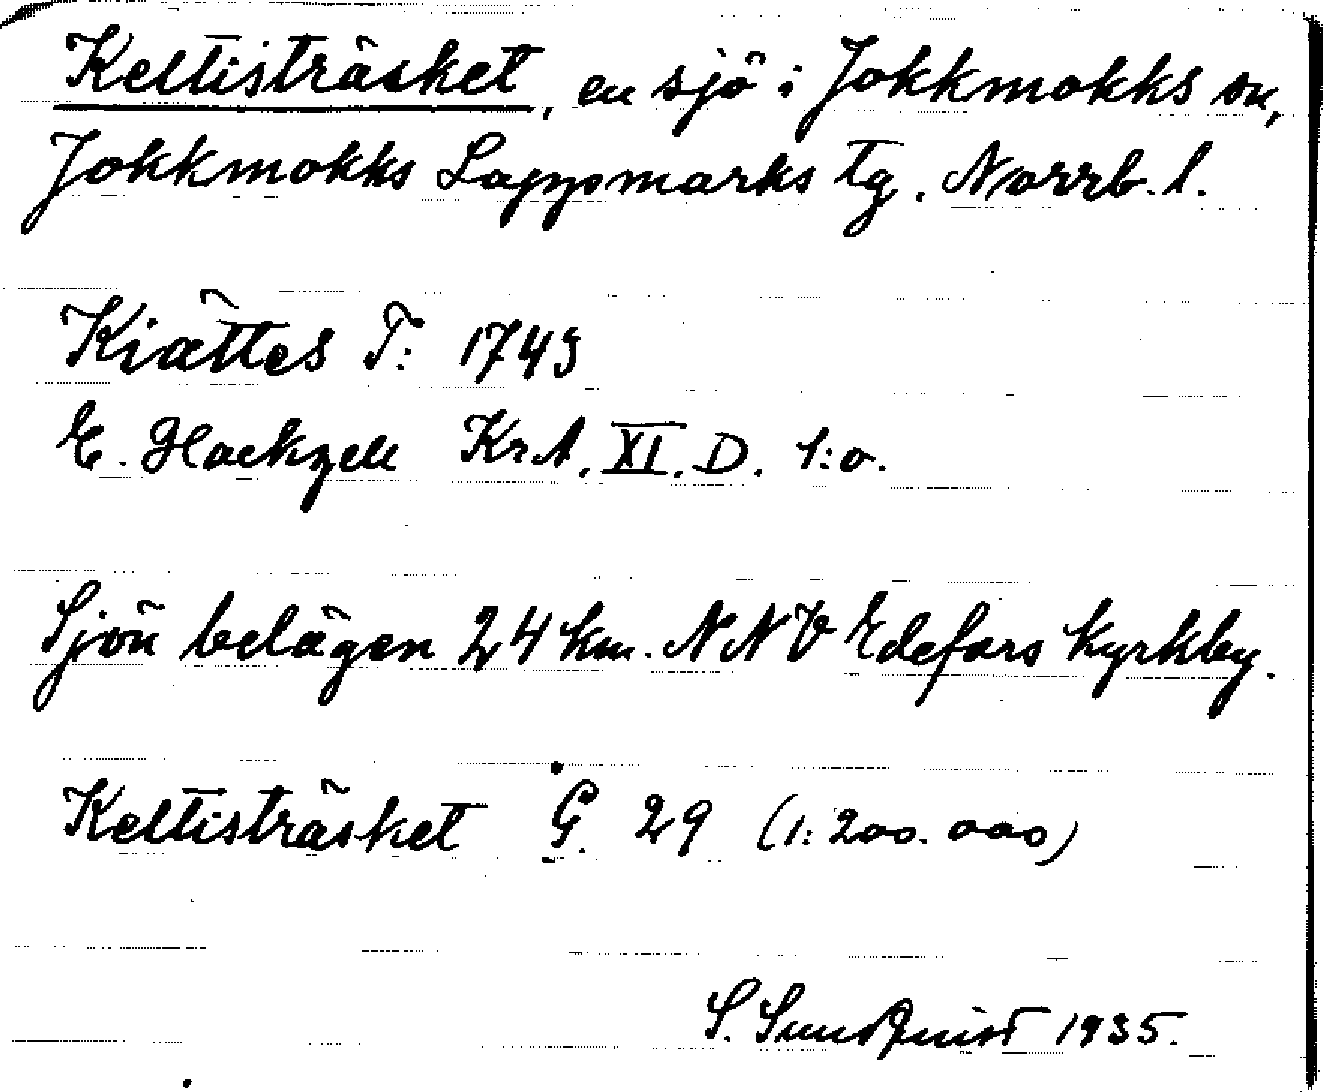 Keltisträsket, en sjö i Jokkmokks sn,
Jokkmokks Lappmarks tg. Norrb. l.
Kiättes T: 1743
E. Hackzell Kr.A. XI. D. 1:o.
Sjön belägen 24 km. NNV Edefors kyrkby.
Keltisträsket G 29 (1:200.000)
S. Sundquist 1935.